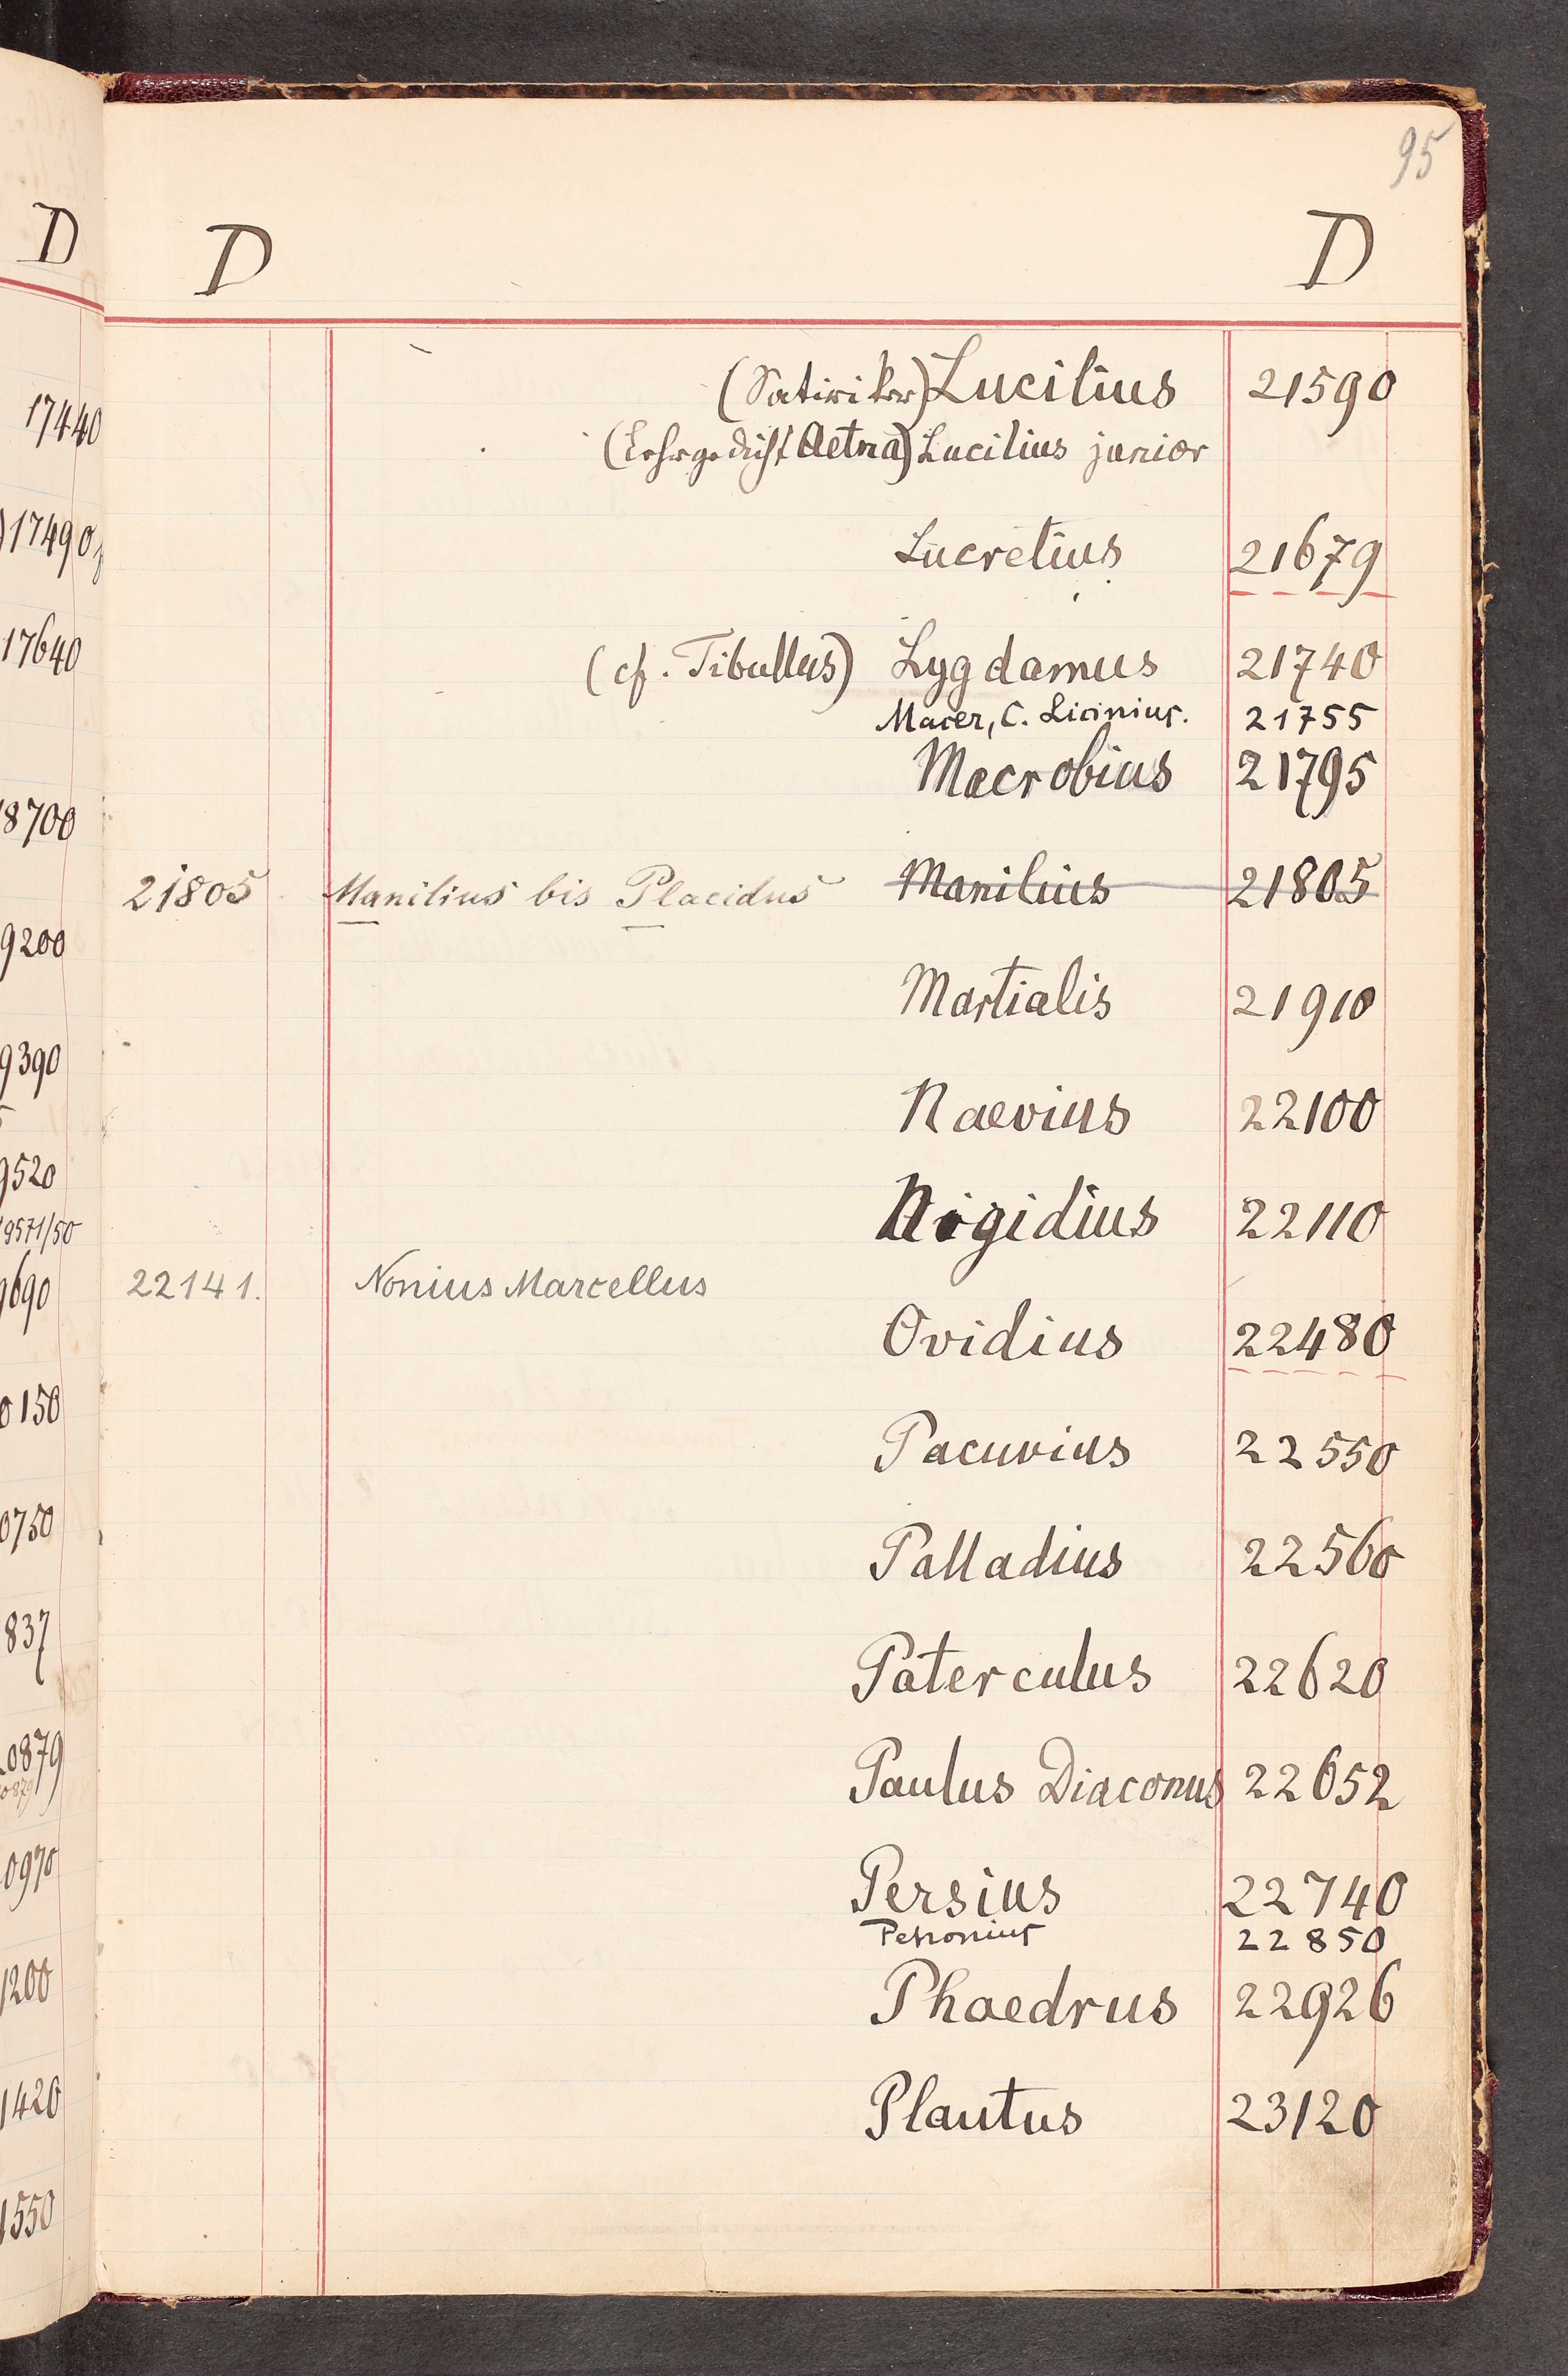 95
D D D
(Satiriker) Lucilius 21590
17440
(Lehrgedicht Aetna) Lucilius junior
17490
Lucretius 21679
17640
(cf. Tibullus) Lygdamus 21740
Macer, C. Licinius. 21755
Macrobius 21795
8700
21805 Manilius bis Placidus Manilius 21805
9200
Martialis 21910
9390
Naevius 22100
9520
Nigidius 22110
9571/50
22141. Nonius Marcellus
9690
Ovidius 22480
0150
Pacuvius 22550
0750
Palladius 22560
837
Paterculus 22620
0879
Paulus Diaconus 22652
0970
Persius 22740
Petronius 22850
1200
Phaedrus 22926
1420
Plautus 23120
1550